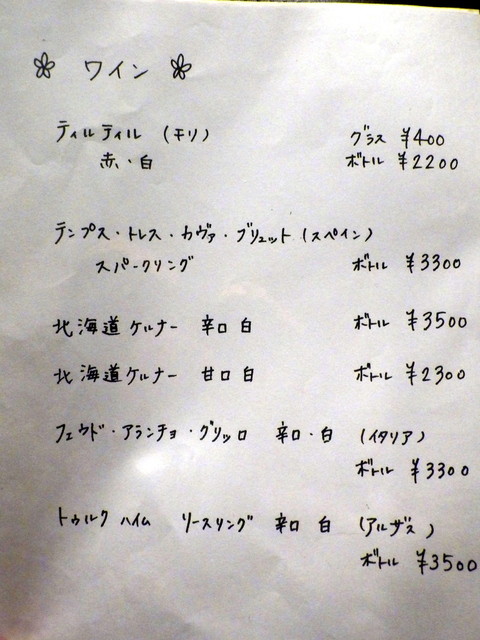 ワイン
ティルティル (モリ) グラス ¥400
赤・白 ボトル ¥2200
テンプス・トレス・カヴァ・ブリュット (スペイン)
スパークリング ボトル ¥3300
北海道ケルナー 辛口 白 ボトル ¥3500
北海道ケルナー 甘口 白 ボトル ¥2300
フェウド・アランチョ・グリッロ 辛口・白 (イタリア)
ボトル ¥3300
トゥルクハイム リースリング 辛口 白 (アルザス)
ボトル ¥3500